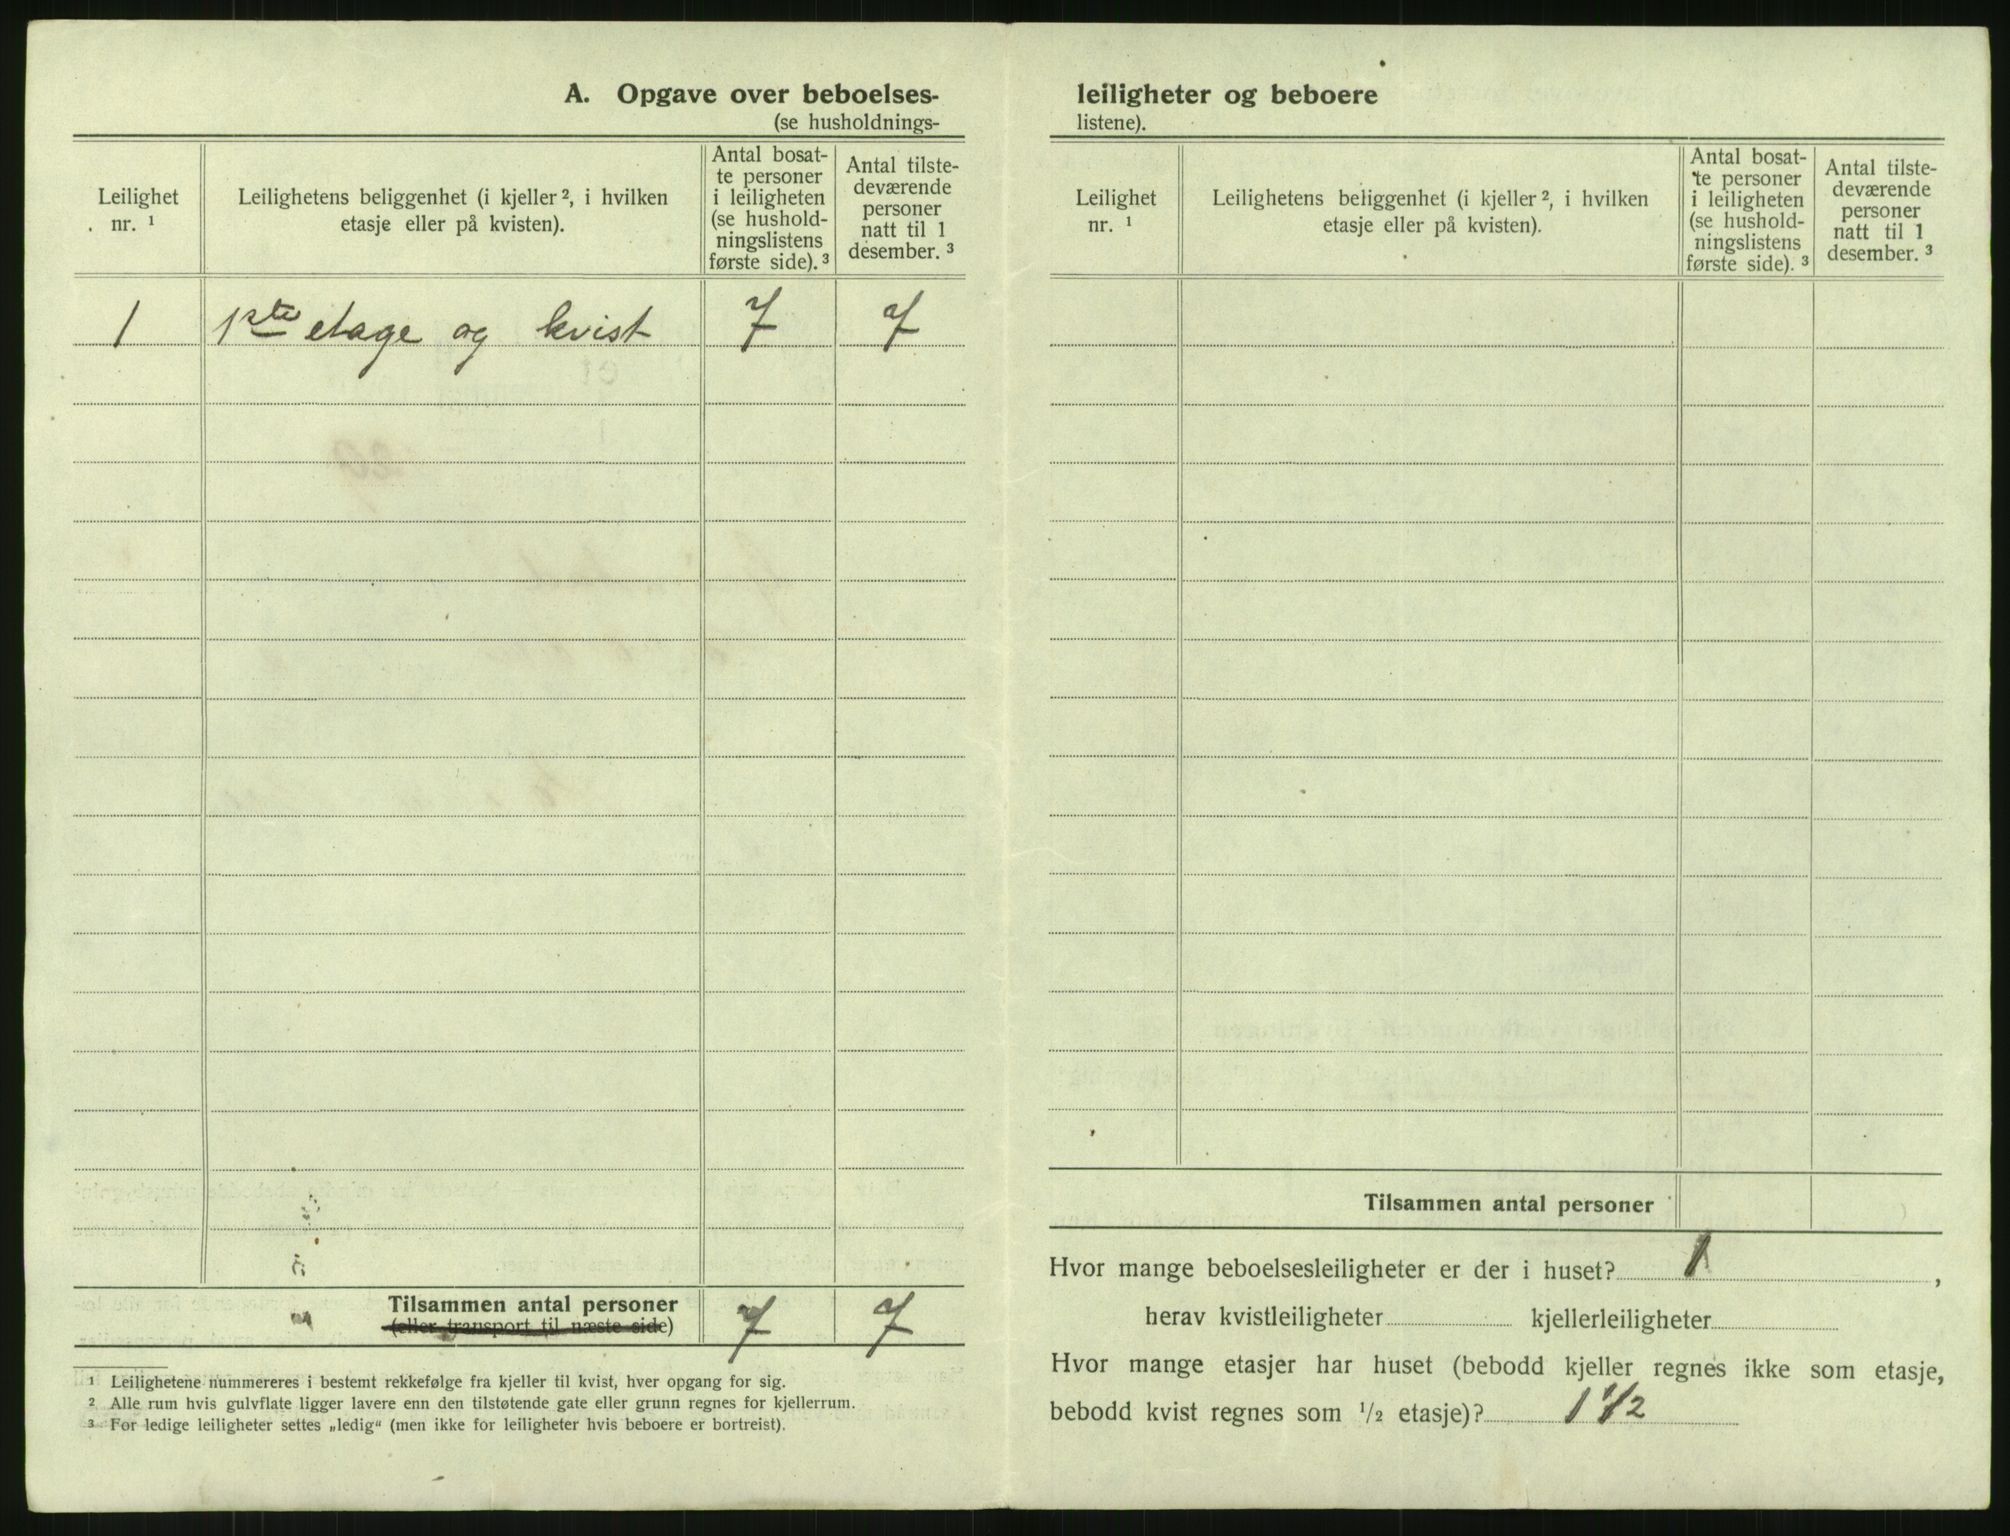 A. Opgave over beboelses-
(se husholdnings-
Leilighet
nr. ¹
Leilighetens beliggenhet (i kjeller ², i hvilken
etasje eller på kvisten).
Antal bosat-
te personer
i leiligheten
(se hushold-
ningslistens
første side). ³
Antal tilste-
deværende
personer
natt til 1
desember. ³
1 1ste etage og kvist 7 7
Tilsammen antal personer 7 7
(eller transport til næste side)
¹ Leilighetene nummereres i bestemt rekkefølge fra kjeller til kvist, hver opgang for sig.
² Alle rum hvis gulvflate ligger lavere enn den tilstøtende gate eller grunn regnes for kjellerrum.
³ For ledige leiligheter settes „ledig“ (men ikke for leiligheter hvis beboere er bortreist).
leiligheter og beboere
listene).
Leilighet
nr. ¹
Leilighetens beliggenhet (i kjeller ², i hvilken
etasje eller på kvisten).
Antal bosat-
te personer
i leiligheten
(se hushold-
ningslistens
første side). ³
Antal tilste-
deværende
personer
natt til 1
desember. ³
Tilsammen antal personer
Hvor mange beboelsesleiligheter er der i huset? 1,
herav kvistleiligheter kjellerleiligheter
Hvor mange etasjer har huset (bebodd kjeller regnes ikke som etasje,
bebodd kvist regnes som ¹/₂ etasje)? 1 1/2